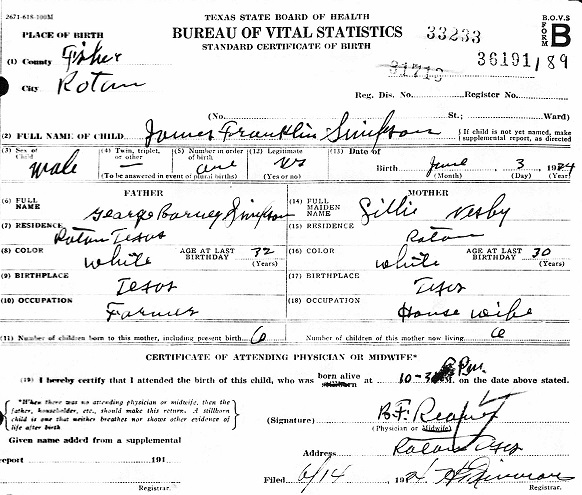 2671-618-100M
TEXAS STATE BOARD OF HEALTH
BUREAU OF VITAL STATISTICS
STANDARD CERTIFICATE OF BIRTH
B.O.V.S
FORM B
33233
36191/89
PLACE OF BIRTH
(1) County Fisher
City Rotan
Reg. Dis. No. Register No.
(No. St.; Ward)
(2) FULL NAME OF CHILD James Franklin Simpson { If child is not yet named, make supplemental report, as directed
(3) Sex of Child Male (4) Twin, triplet, or other — (5) Number in order of birth one (12) Legitimate (Yes or no) (13) Date of Birth June 3 1924
(To be answered in event of plural births) (Month) (Day) (Year)
FATHER MOTHER
(6) FULL NAME George Barney Simpson (14) FULL MAIDEN NAME Lillie
(7) RESIDENCE Rotan Texas (15) RESIDENCE Rotan
(8) COLOR White AGE AT LAST BIRTHDAY 32 (Years) (16) COLOR White AGE AT LAST BIRTHDAY 30 (Years)
(9) BIRTHPLACE Texas (17) BIRTHPLACE Texas
(10) OCCUPATION Farmer (18) OCCUPATION House wife
(11) Number of children born to this mother, including present birth. 6 Number of children of this mother now living. 6
CERTIFICATE OF ATTENDING PHYSICIAN OR MIDWIFE*
(19) I hereby certify that I attended the birth of this child, who was born alive stillborn at 10-30 P.M. on the date above stated.
{ *When there was no attending physician or midwife, then the father, householder, etc., should make this return. A stillborn child is one that neither breathes nor shows other evidence of life after birth }
(Signature) B.F.
(Physician or Midwife)
Given name added from a supplemental
Address Rotan Texas
report 191
Filed 6/14 1924
Registrar. Registrar.